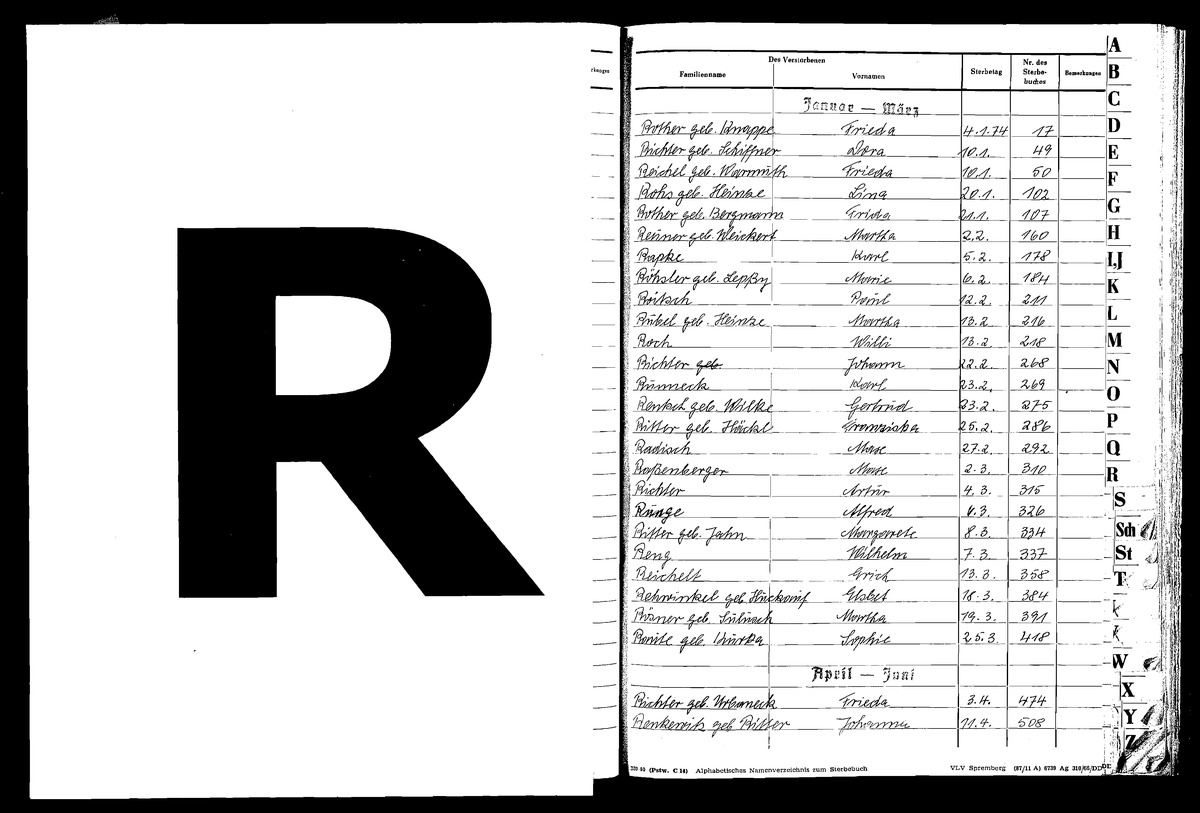 R
Des Verstorbenen
Familienname Vornamen Sterbetag Nr. des Sterbe-buches Bemerkungen
Januar — März
Rother geb. Knappe Frieda 4.1.74 17
Richter geb. Schiffner Dora 10.1. 49
Reichel geb. Warmuth Frieda 10.1. 50
Rohs geb. Heinze Lina 20.1. 102
Rother geb. Bergmann Frida 21.1. 107
Reuner geb. Weickert Martha 2.2. 160
Rapke Karl 5.2. 178
Röhsler geb. Marie 6.2. 184
Röitsch Paul 12.2. 211
Rübel geb. Heinze Martha 13.2 216
Roch Willi 13.2. 218
Richter geb. Johann 22.2. 268
Rünneck Karl 23.2. 269
Rentsch geb. Wilke Gertrud 23.2. 275
Ritter geb. Höckl Franziska 25.2. 286
Radisch Max 27.2. 292
Raßenberger Max 2.3. 310
Richter Artur 4.3. 315
Runge Alfred 6.3. 326
Ritter geb. Jahn Margarete 8.3. 334
Reng Wilhelm 7.3. 337
Reichelt Erich 13.3. 358
Rehwinkel geb. Elsbet 18.3. 384
Rösner geb. Martha 19.3. 391
geb. Sophie 25.3. 418
April — Juni
Richter geb. Urbaneck Frieda 3.4. 474
geb Ritter Johanna 11.4. 508
(Pstw. C 14) Alphabetisches Namenverzeichnis zum Sterbebuch VLV Spremberg (87/11 A) 6739 Ag 310/66/DDR
A
B
C
D
E
F
G
H
I,J
K
L
M
N
O
P
Q
R
S
Sch
St
T
W
X
Y
Z